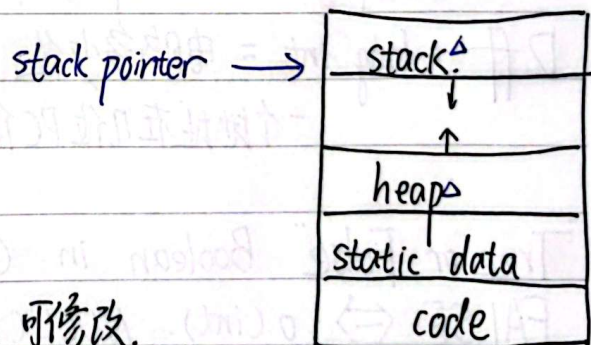 stack pointer → stack.△
↓
↑
heap△
static data
可修改.
code